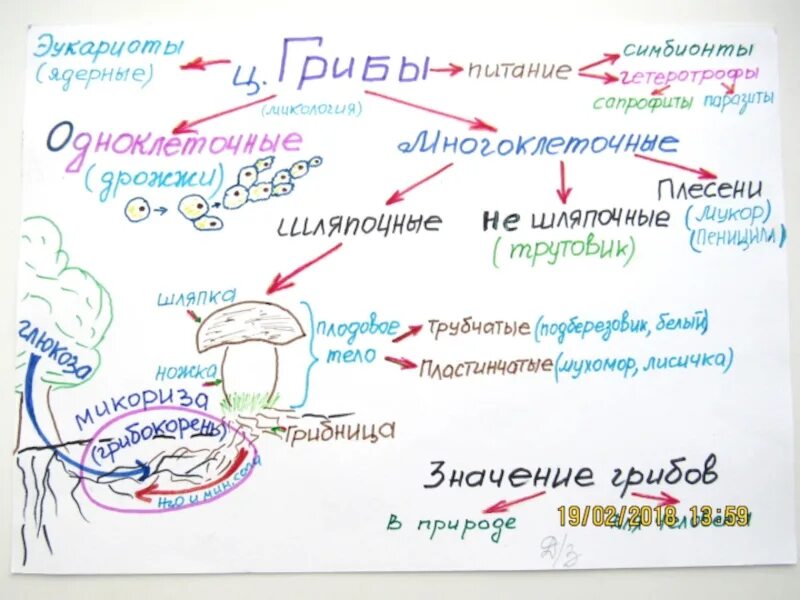 Эукариоты
(ядерные)
Ц. Грибы
(микология)
питание
симбионты
гетеротрофы
сапрофиты паразиты
Одноклеточные
(дрожжи)
Многоклеточные
шляпочные
не шляпочные
(трутовик)
Плесени
(мукор)
(пеницилл)
глюкоза
шляпка
ножка
плодовое
тело
Трубчатые (подберезовик, белый)
Пластинчатые (мухомор, лисичка)
микориза
(грибокорень)
грибница
H2O и мин. соли
Значение грибов
в природе
для человека
19/02/2018 13:59
Д/з